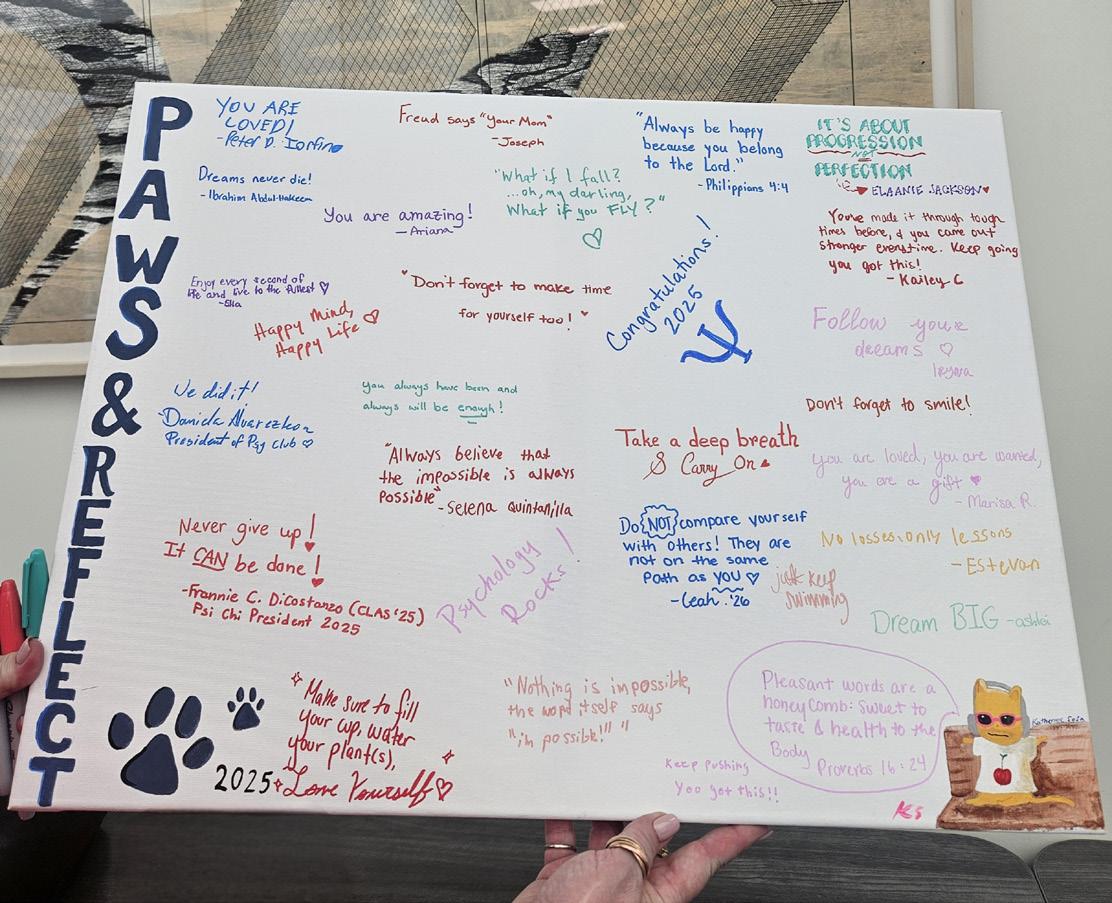 PAWS & REFLECT
YOU ARE
LOVED!
-Peter D. Iorfino
Freud says "Your Mom"
-Joseph
"Always be happy
because you belong
to the Lord."
-Philippians 4:4
IT'S ABOUT
PROGRESSION
NOT
PERFECTION
ELAANIE JACKSON
Dreams never die!
-Ibrahim Abdul-Hakeem
"What if I fall?
...oh, my darling,
What if you FLY?"
You are amazing!
-Ariana
You've made it through tough
times before, & you came out
stronger everytime. Keep going
you got this!
- Kailey C
Enjoy every second of
life and live to the fullest
-Ella
Happy Mind,
Happy Life
"Don't forget to make time
for yourself too!"
Congratulations!
2025
Ψ
Follow your
dreams
Iryna
We did it!
-Daniela
President of Psy Club
You always have been and
always will be enough!
Don't forget to smile!
"Always believe that
the impossible is always
possible"
-Selena Quintanilla
Take a deep breath
& Carry On
you are loved, you are wanted,
you are a gift
- Marisa R.
Never give up!
It CAN be done!
-Frannie C. DiCostanzo (CLAS '25)
Psi Chi President 2025
Psychology
Rocks!
Do NOT compare yourself
with others! They are
not on the same
Path as YOU
-Leah. '26
just keep
swimming
No losses, only lessons
-Estevan
Dream BIG -ashlei
2025
Make sure to fill
your cup, water
your plant(s),
Love Yourself
"Nothing is impossible,
the word itself says
"i'm possible!" "
Keep pushing
You got this!!
Pleasant words are a
honeycomb: sweet to
taste & health to the
Body
Proverbs 16:24
KES
Katherine Sosa